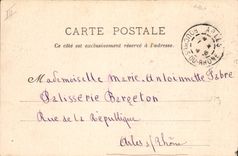 CARTE POSTALE
Ce côté est exclusivement réservé à l'adresse.
ARLES
Mademoiselle Marie-Antoinette Fabre
Patisserie Bergeton
Rue de la République
Arles s/Rhône